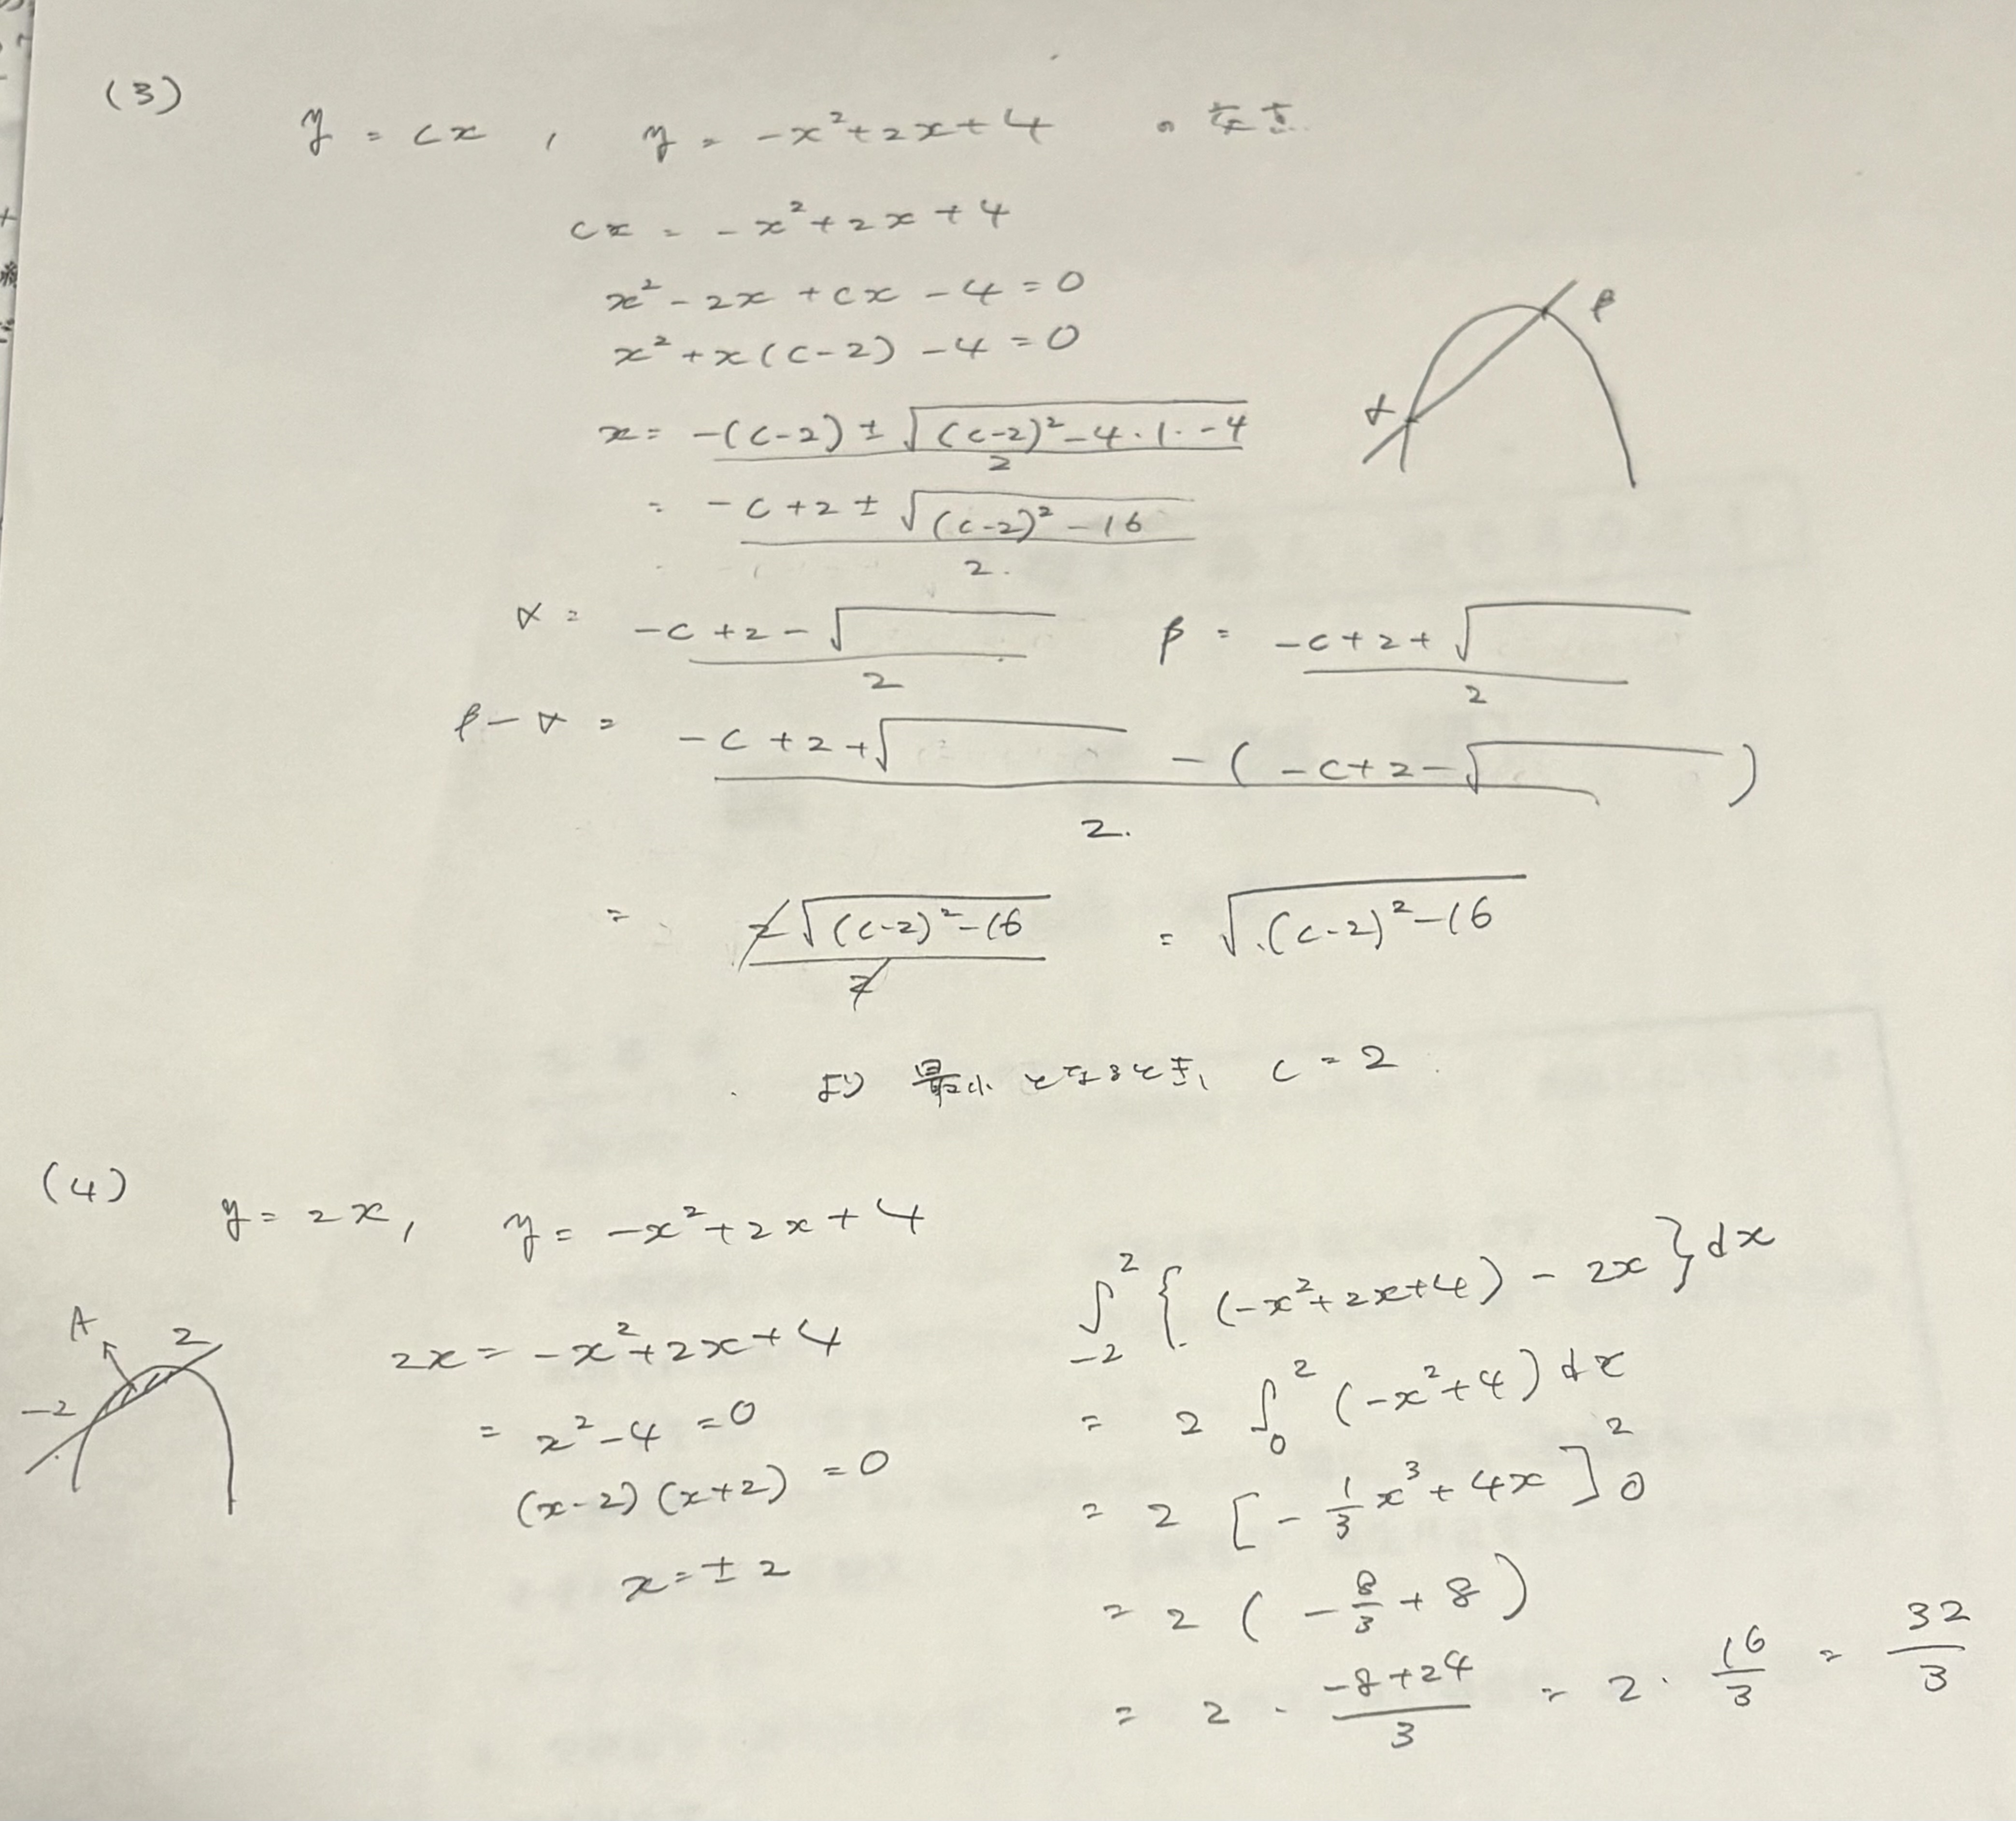 (3)
y = cx , y = -x²+2x+4 の交点
cx = -x²+2x+4
x²-2x+cx-4=0
x²+x(c-2)-4=0
x= (-(c-2)±√((c-2)²-4・1・-4))/2
= (-c+2±√((c-2)²-16))/2.
α β
α = (-c+2-√ )/2 β = (-c+2+√ )/2
β-α = (-c+2+√ -(-c+2-√ ))/2.
= 2√((c-2)²-16)/2 = √((c-2)²-16)
より 最小となるとき, c=2
(4)
y=2x, y=-x²+2x+4
A 2 -2
2x=-x²+2x+4
= x²-4=0
(x-2)(x+2)=0
x=±2
∫₋₂² {(-x²+2x+4)-2x}dx
= 2∫₀² (-x²+4)dx
= 2[-1/3x³+4x]₀²
= 2(-8/3+8)
= 2・(-8+24)/3 = 2・16/3 = 32/3